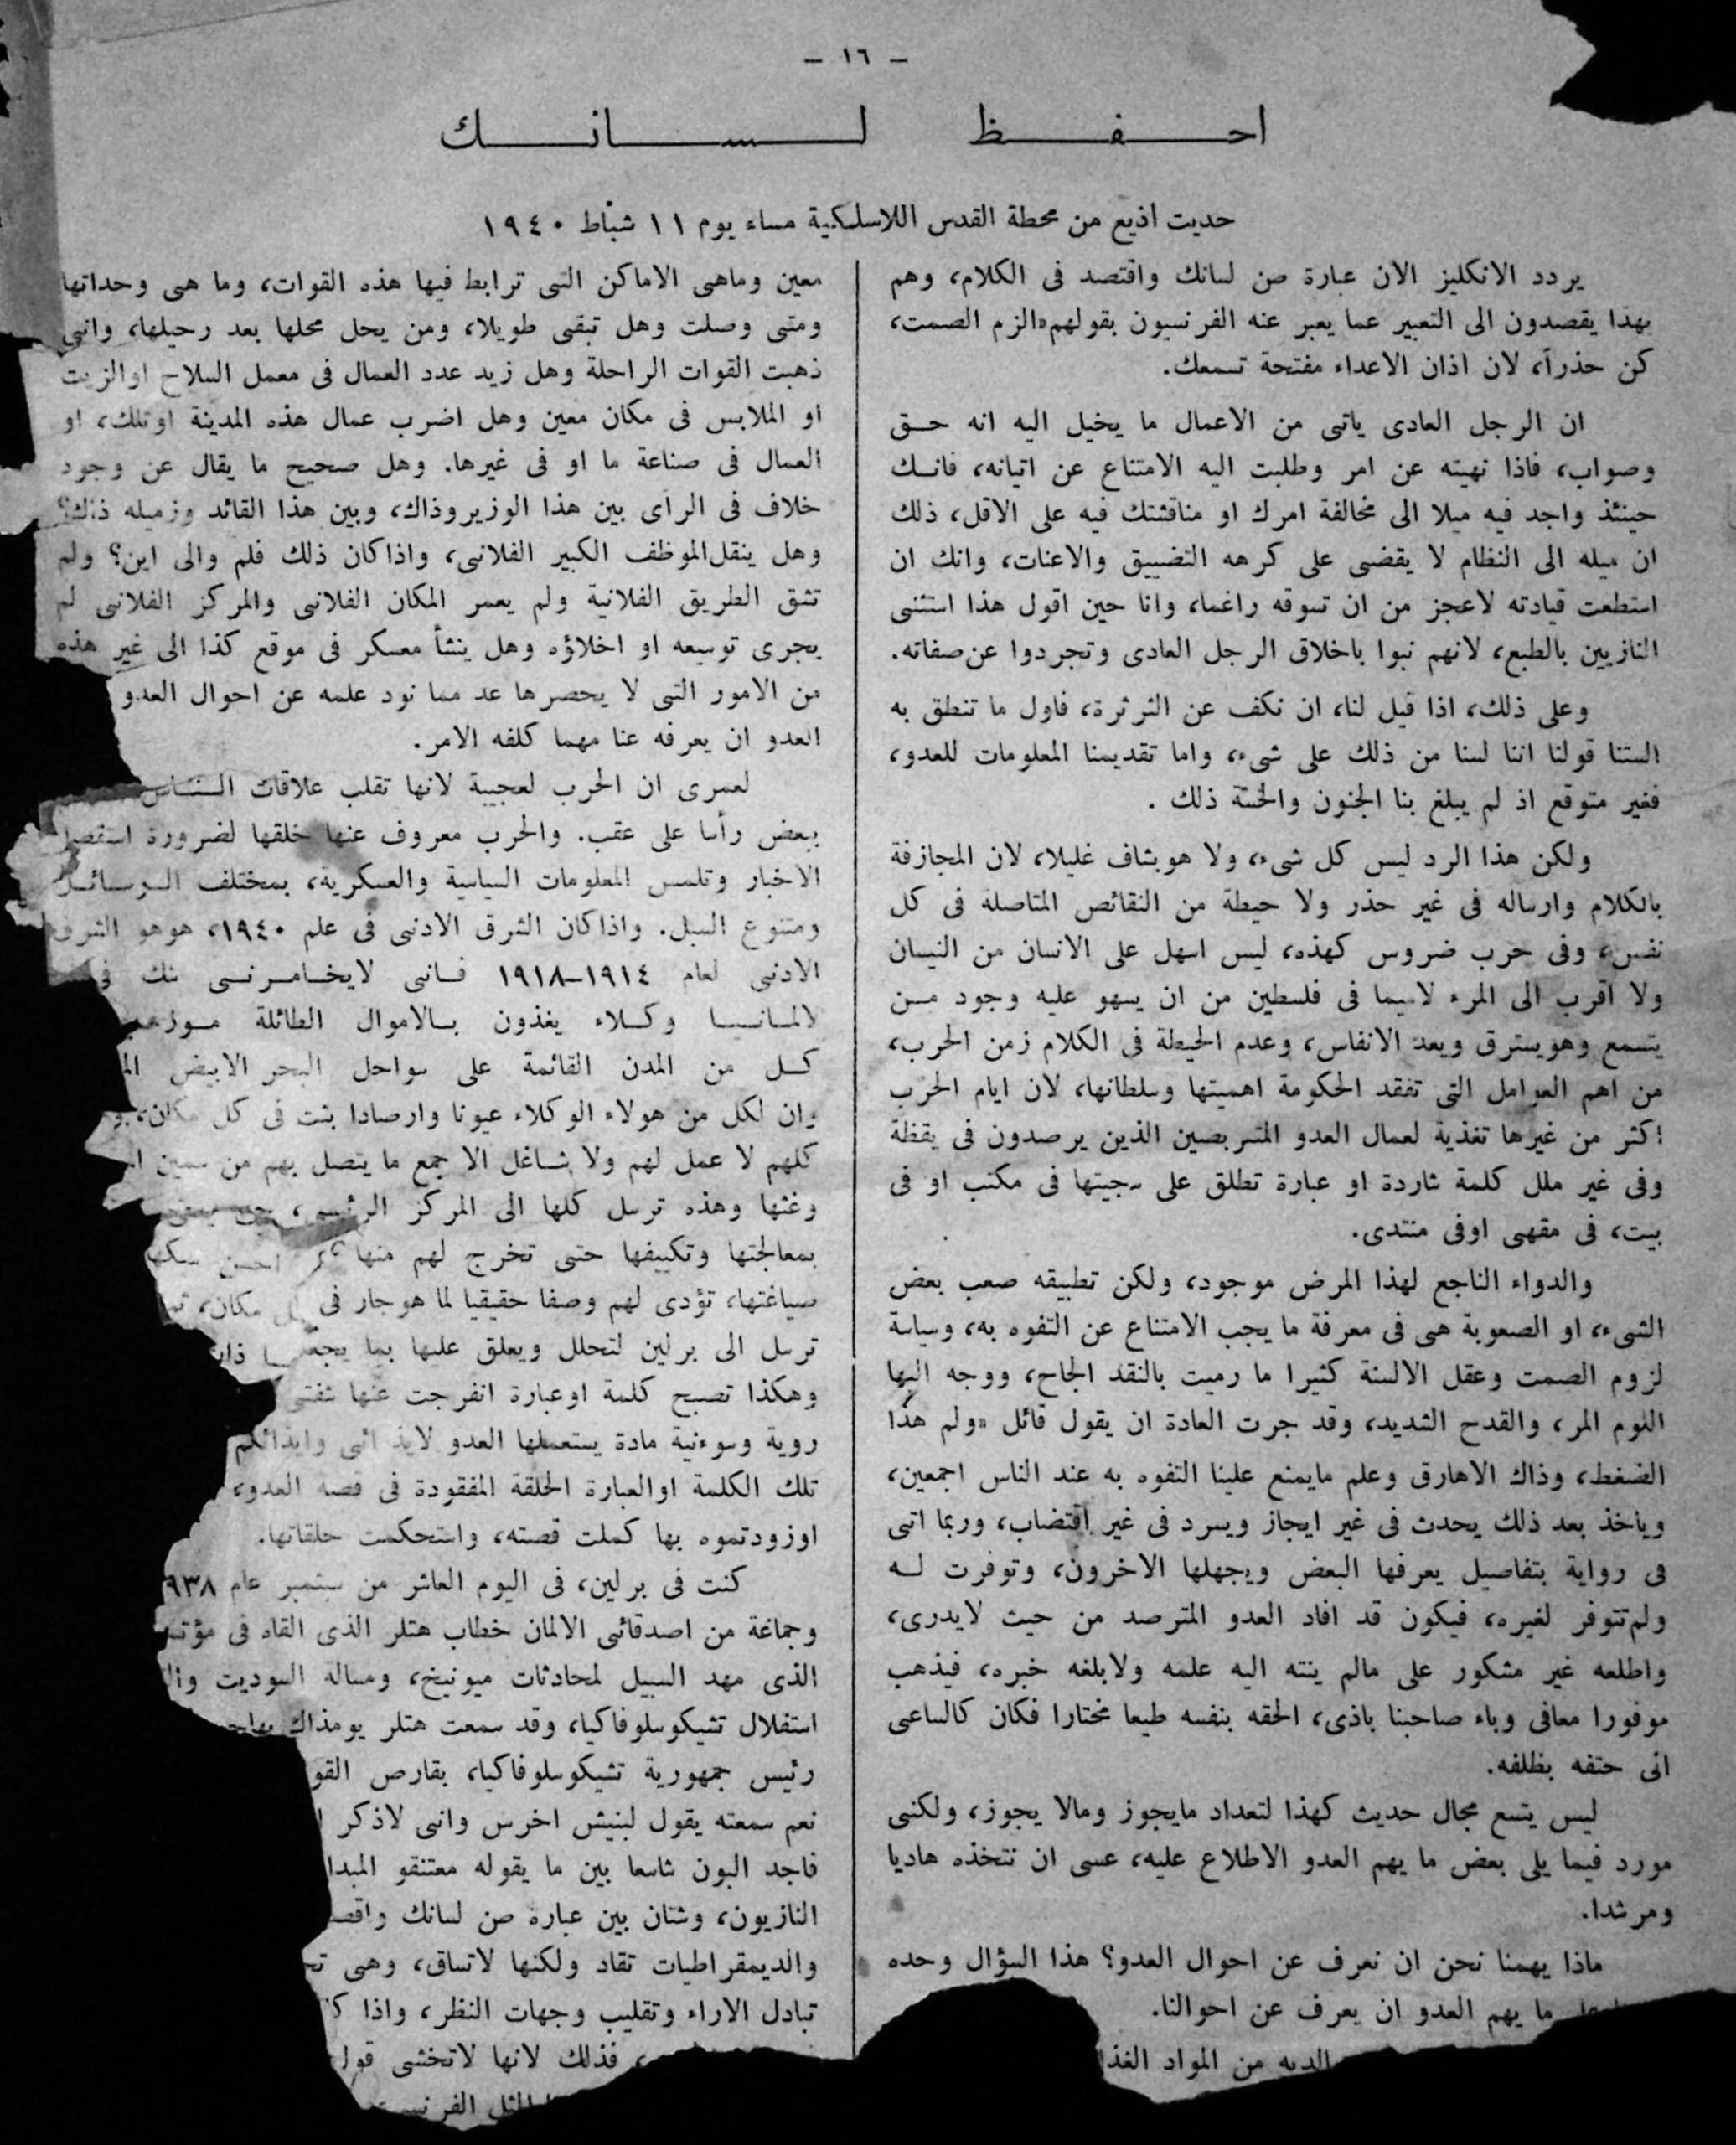 - ١٦ -
احفظ لسانك
حديث اذيع من محطة القدس اللاسلكية مساء يوم ١١ شباط ١٩٤٠
يردد الانكليز الان عبارة صن لسانك واقتصد فى الكلام، وهم
بهذا يقصدون الى التعبير عما يعبر عنه الفرنسيون بقولهم «الزم الصمت،
كن حذراً، لان اذان الاعداء مفتحة تسمعك.
ان الرجل العادى ياتى من الاعمال ما يخيل اليه انه حق
وصواب، فاذا نهيته عن امر وطلبت اليه الامتناع عن اتيانه، فانك
حينئذ واجد فيه ميلا الى مخالفة امرك او مناقشتك فيه على الاقل، ذلك
ان ميله الى النظام لا يقضى على كرهه التضييق والاعنات، وانك ان
استطعت قيادته لاعجز من ان تسوقه راغما، وانا حين اقول هذا استثنى
النازيين بالطبع، لانهم نبوا باخلاق الرجل العادى وتجردوا عن صفاته.
وعلى ذلك، اذا قيل لنا، ان نكف عن الثرثرة، فاول ما تنطق به
السنتنا قولنا اننا لسنا من ذلك على شىء، واما تقديمنا المعلومات للعدو،
فغير متوقع اذ لم يبلغ بنا الجنون والخسة ذلك .
ولكن هذا الرد ليس كل شىء، ولا هو بشاف غليلا، لان المجازفة
بالكلام وارساله فى غير حذر ولا حيطة من النقائص المتاصلة فى كل
نفس، وفى حرب ضروس كهذه، ليس اسهل على الانسان من النسيان
ولا اقرب الى المرء لاسيما فى فلسطين من ان يسهو عليه وجود من
يتسمع وهو يسترق ويعد الانفاس، وعدم الحيطة فى الكلام زمن الحرب،
من اهم العوامل التى تفقد الحكومة اهميتها وسلطانها، لان ايام الحرب
اكثر من غيرها تغذية لعمال العدو المتربصين الذين يرصدون فى يقظة
وفى غير ملل كلمة شاردة او عبارة تطلق على سجيتها فى مكتب او فى
بيت، فى مقهى اوفى منتدى.
والدواء الناجع لهذا المرض موجود، ولكن تطبيقه صعب بعض
الشىء، او الصعوبة هى فى معرفة ما يجب الامتناع عن التفوه به، وسياسة
لزوم الصمت وعقل الالسنة كثيرا ما رميت بالنقد الجاح، ووجه اليها
اللوم المر، والقدح الشديد، وقد جرت العادة ان يقول قائل «ولم هذا
الضغط، وذاك الاهارق وعلم مايمنع علينا التفوه به عند الناس اجمعين،
وياخذ بعد ذلك يحدث فى غير ايجاز ويسرد فى غير اقتضاب، وربما اتى
فى رواية بتفاصيل يعرفها البعض ويجهلها الاخرون، وتوفرت له
ولم تتوفر لغيره، فيكون قد افاد العدو المترصد من حيث لايدرى،
واطلعه غير مشكور على مالم ينته اليه علمه ولابلغه خبره، فيذهب
موفورا معافى وباء صاحبنا باذى، الحقه بنفسه طيعا مختارا فكان كالساعى
الى حتفه بظلفه.
ليس يتسع مجال حديث كهذا لتعداد مايجوز ومالا يجوز، ولكنى
مورد فيما يلى بعض ما يهم العدو الاطلاع عليه، عسى ان نتخذه هاديا
ومرشدا.
ماذا يهمنا نحن ان نعرف عن احوال العدو؟ هذا السؤال وحده
ما يهم العدو ان يعرف عن احوالنا.
لديه من المواد
معين وماهى الاماكن التى ترابط فيها هذه القوات، وما هى وحداتها
ومتى وصلت وهل تبقى طويلا، ومن يحل محلها بعد رحيلها، وانى
ذهبت القوات الراحلة وهل زيد عدد العمال فى معمل السلاح اوالزيت
او الملابس فى مكان معين وهل اضرب عمال هذه المدينة اوتلك، او
العمال فى صناعة ما او فى غيرها. وهل صحيح ما يقال عن وجود
خلاف فى الراى بين هذا الوزير وذاك، وبين هذا القائد وزميله ذاك؟
وهل ينقل الموظف الكبير الفلانى، واذاكان ذلك فلم والى اين؟ ولم
تشق الطريق الفلانية ولم يعمر المكان الفلانى والمركز الفلانى لم
يجرى توسيعه او اخلاؤه وهل ينشأ معسكر فى موقع كذا الى غير هذه
من الامور التى لا يحصرها عد مما نود علمه عن احوال العدو
العدو ان يعرفه عنا مهما كلفه الامر.
لعمرى ان الحرب لعجيبة لانها تقلب علاقات الناس
ببعض رأسا على عقب. والحرب معروف عنها خلقها لضرورة استقصاء
الاخبار وتلمس المعلومات السياسية والعسكرية، بمختلف الوسائل
ومتنوع السبل. واذاكان الشرق الادنى فى علم ١٩٤٠، هوهو الشرق
الادنى لعام ١٩١٤-١٩١٨ فانى لايخامرنى شك فى
لالمانيا وكلاء يغذون بالاموال الطائلة
كل من المدن القائمة على سواحل البحر الابيض
وان لكل من هولاء الوكلاء عيونا وارصادا بثت فى كل مكان،
كلهم لا عمل لهم ولا شاغل الا جمع ما يتصل بهم من سمين
وغثها وهذه ترسل كلها الى المركز الرئيسى،
بمعالجتها وتكييفها حتى تخرج لهم منها احسن
صياغتها، تؤدى لهم وصفا حقيقيا لما هو جار فى كل مكان،
ترسل الى برلين لتحلل ويعلق عليها بما
وهكذا تصبح كلمة اوعبارة انفرجت عنها
روية وسوءنية مادة يستعملها العدو وايذائكم
تلك الكلمة اوالعبارة الحلقة المفقودة فى قصة العدو،
اوزودتموه بها كملت قصته، واستحكمت حلقاتها.
كنت فى برلين، فى اليوم العاشر من سبتمبر عام ٩٣٨
وجماعة من اصدقائى الالمان خطاب هتلر الذى القاه فى
الذى مهد السبيل لمحادثات ميونيخ، ومسالة السوديت
استقلال تشيكوسلوفاكيا، وقد سمعت هتلر يومذاك
رئيس جمهورية تشيكوسلوفاكيا، بقارص
نعم سمعته يقول لبنيش اخرس وانى لاذكر
فاجد البون شاسعا بين ما يقوله معتنقو
النازيون، وشتان بين عبارة صن لسانك
والديمقراطيات تقاد ولكنها لاتساق، وهى
تبادل الاراء وتقليب وجهات النظر، واذا
فذلك لانها لاتخشى
المثل